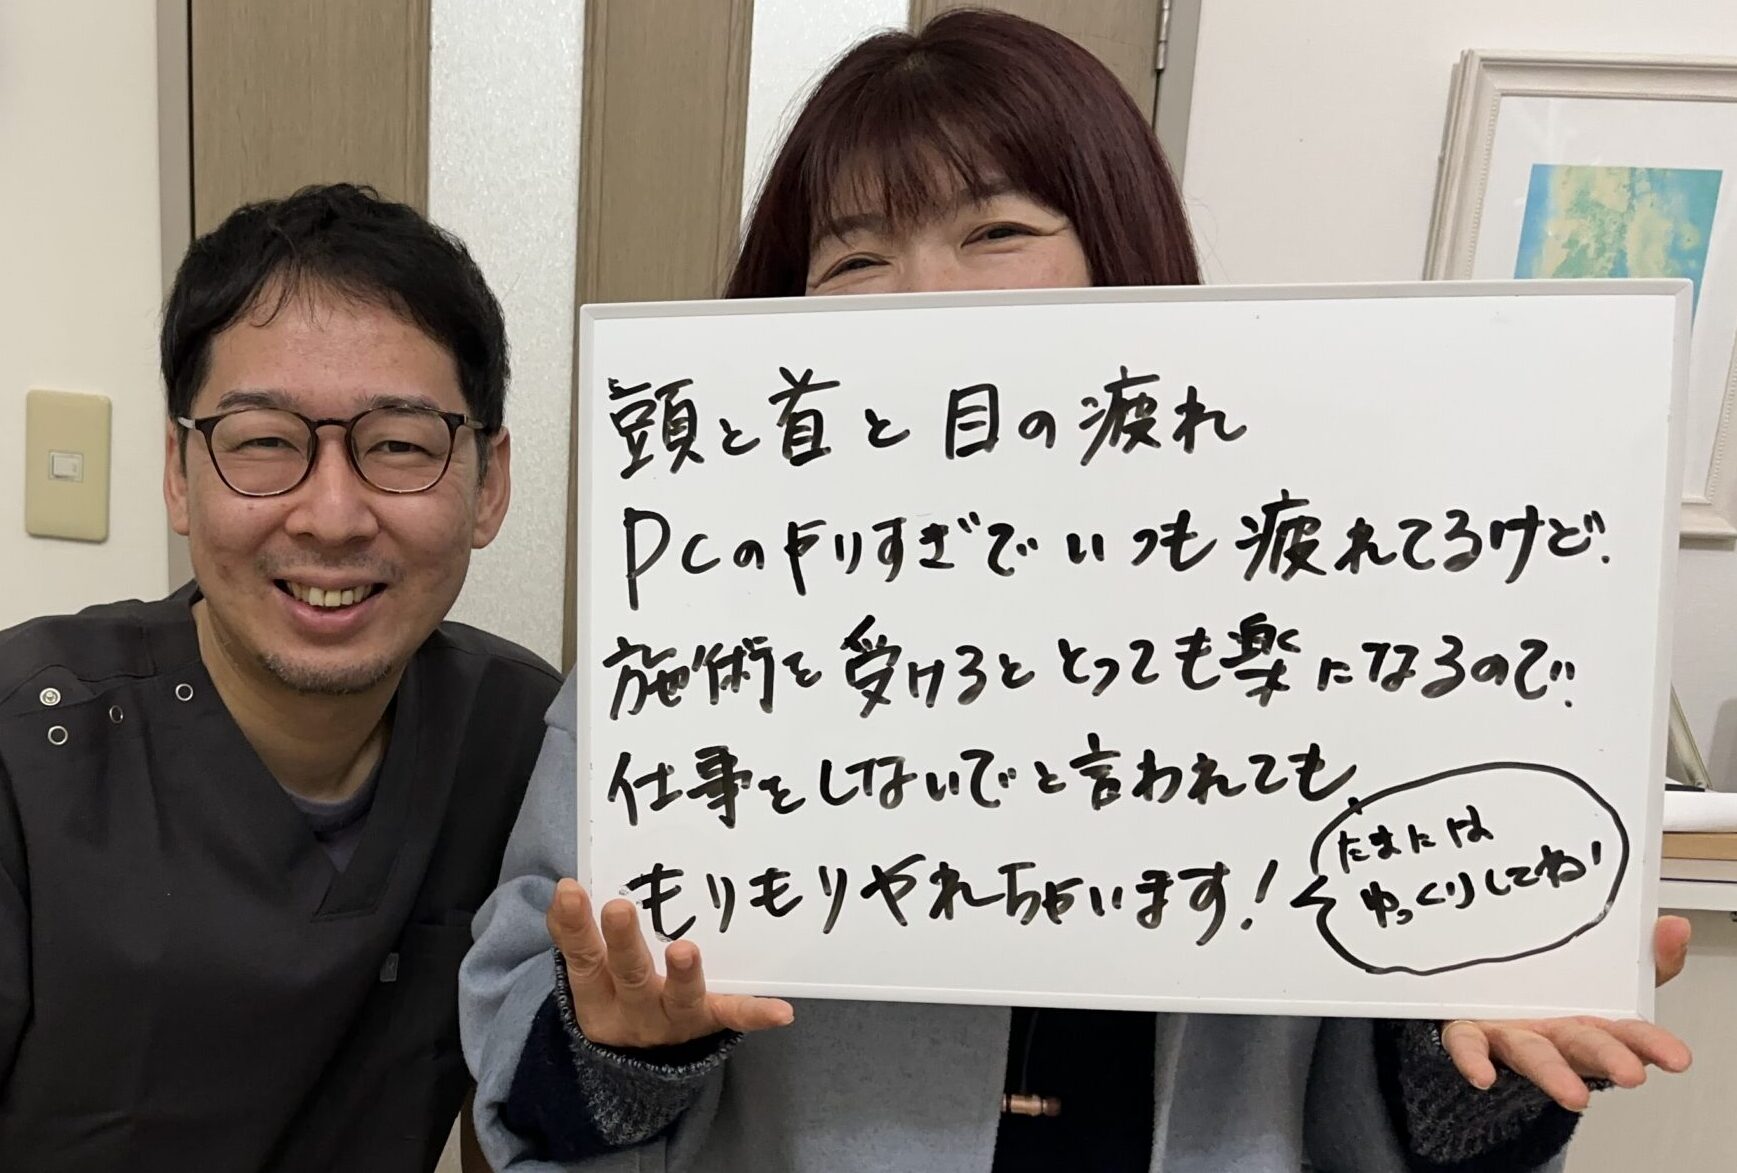 頭と首と目の疲れ
PCのやりすぎでいつも疲れてるけど、
施術を受けるととっても楽になるので、
仕事をしないでと言われても、
もりもりやれちゃいます!
たまには
ゆっくりしてね!